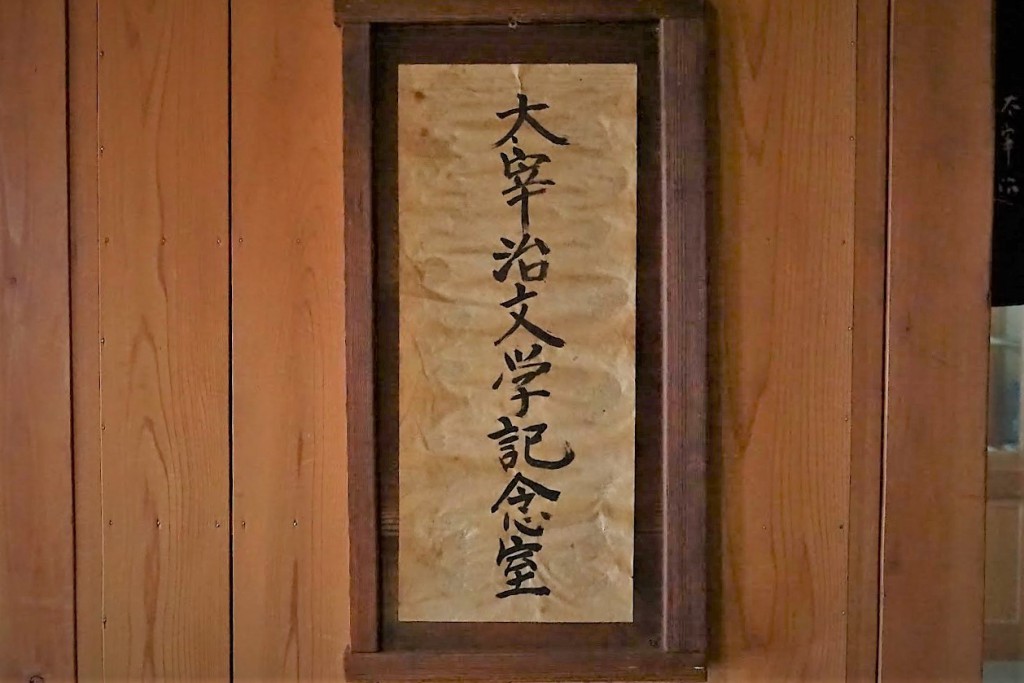 太宰治文学記念室
太宰治